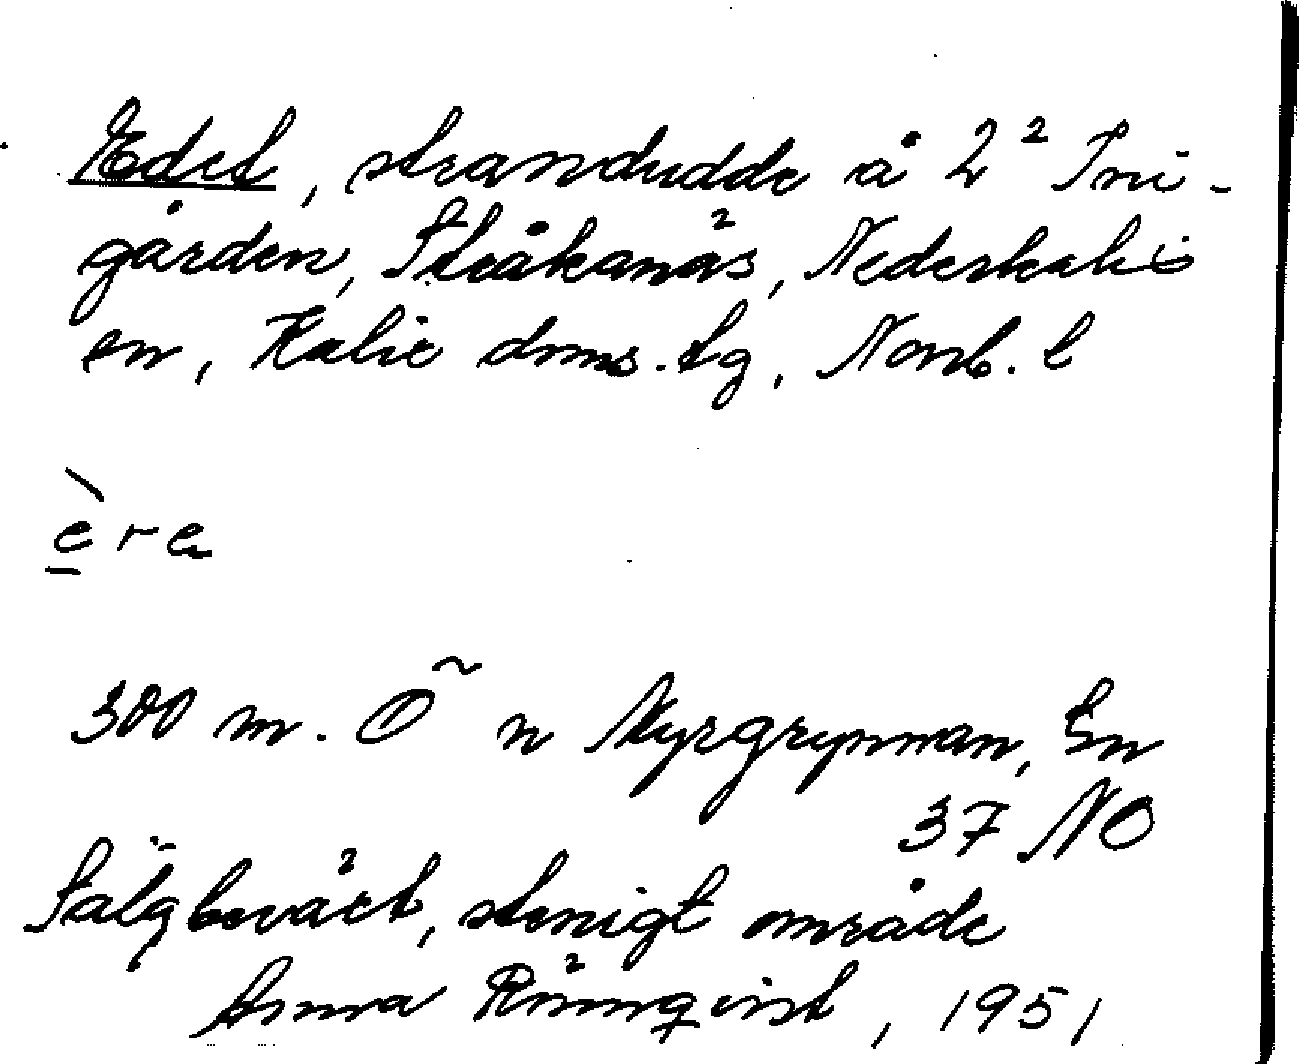 Edet, strandudde å 2² Tri-
gården, Stråkanäs, Nederkalix
en, Kalix dms.lg, Norrb. l
ère
300 m. Ö n Myrgrynnan, En
37 NO
Sälgbeväxt, stenigt område
Anna Rönnqvist, 1951